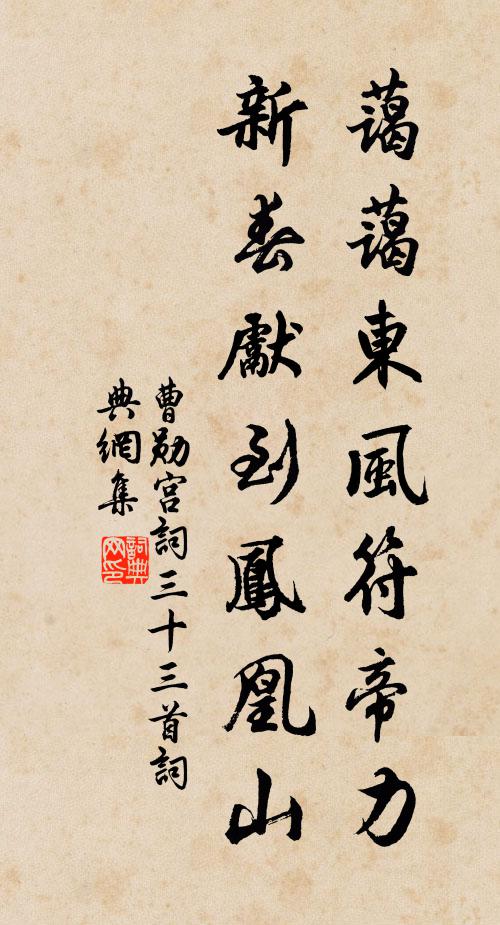 藹藹東風符帝力
新春獻到鳳凰山
曹勛宮詞三十三首詞
典網集
詞典
网印